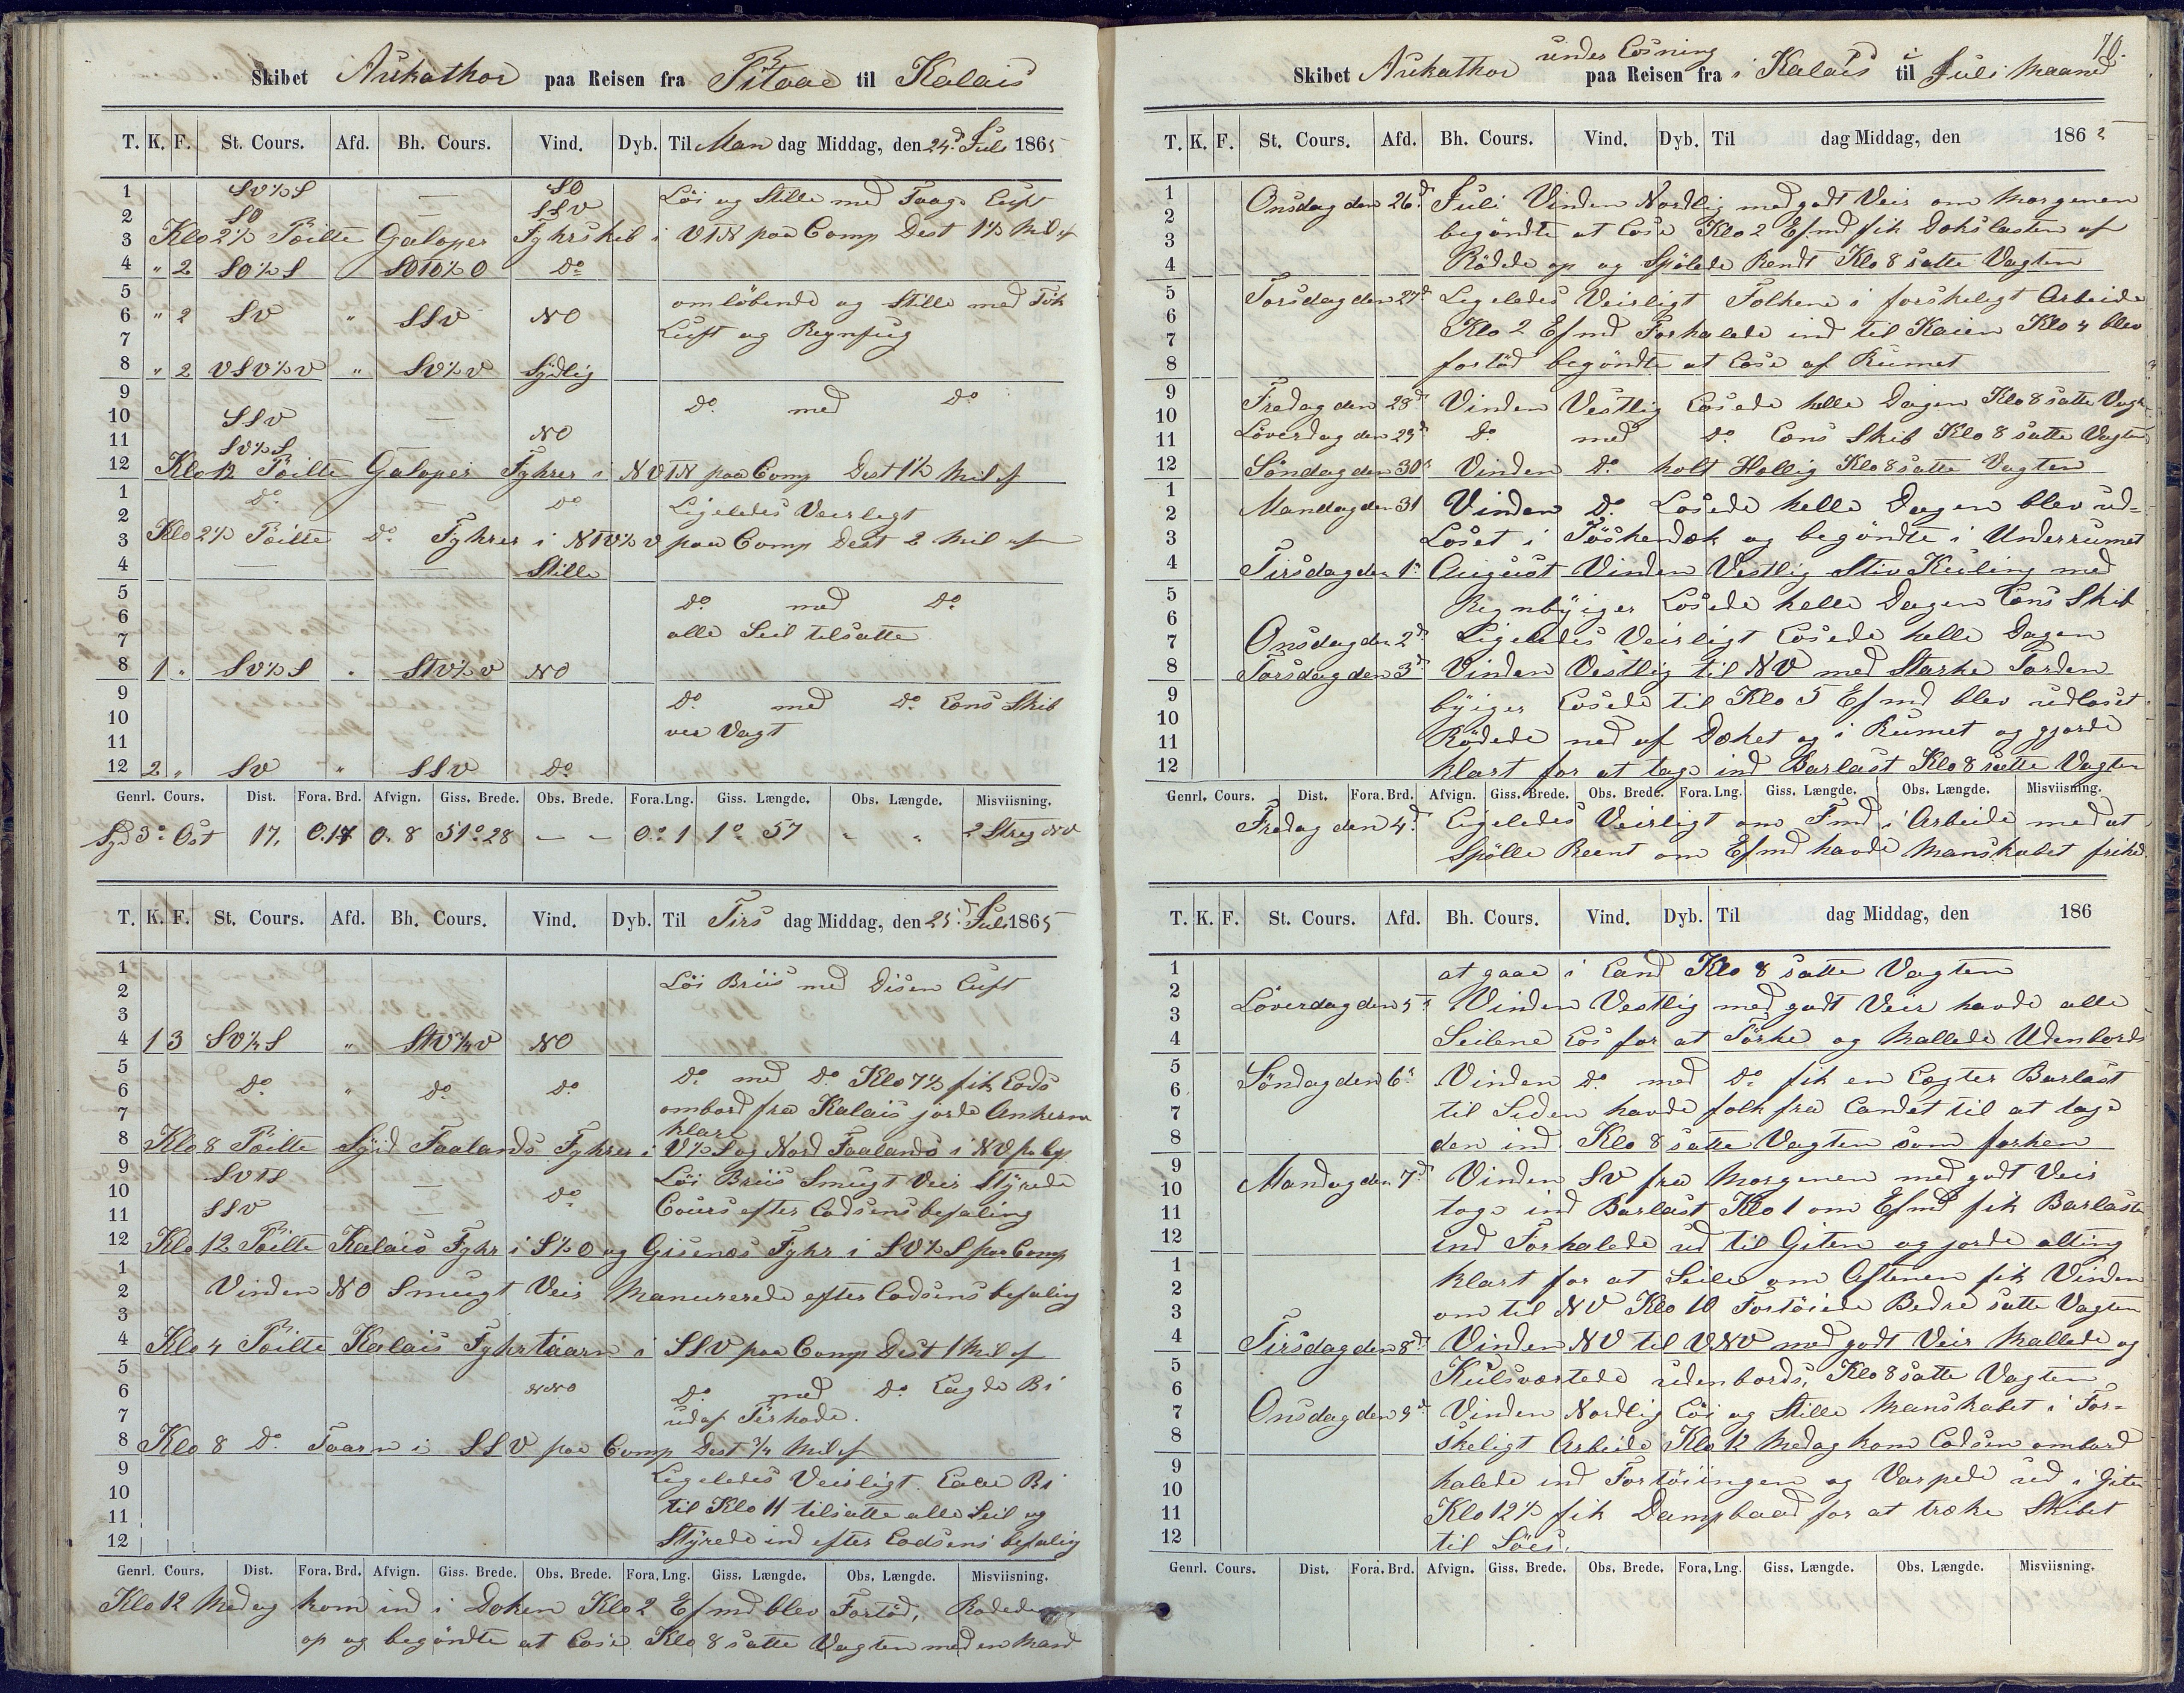 Skibet Aukathor paa Reisen fra Pitaae til Kalais
T. K. F. St. Cours. Afd. Bh. Cours. Vind. Dyb. Til Man dag Middag, den 24d Juli 1865
1 SV½S — SO Löi og Stille med Taage Luft
2 SO — SSV
3 Klo 2½ Peilte Galoper Fyhrskib i VTN paa Comp Dest 1½ Mil af
4 " 2 SO½S SOTO½O Do
5 omlöbende og Stille med Tök
6 " 2 SV " SSV NO
7 Luft og Regnfug
8 " 2 VSV½V " SV½V Sÿdlig
9 Do med Do
10 SSV —
11 SV½S — NO
12 Klo 12 Peilte Galoper Fyhrer i NVTN paa Comp Dest 1½ Mil af
1 Do — Do Ligeledes Veirligt
2
3 Klo 2½ Peilte Do Fyhrer i NTV½V paa Comp Dest 2 Mil af
4 — — Stille
5 Do med Do
6
7 alle Seil tilsatte
8 1 " SV½S " STV½V NO
9 Do med Do Lens Skib
10 ved Vagt
11
12 2 " SV " SSV Do
Genrl. Cours. Dist. Fora. Brd. Afvign. Giss. Brede. Obs. Brede. Fora. Lng. Giss. Længde. Obs. Længde. Misviisning.
Syd 3° Ost 17, 0.17 0. 8 51° 28 — — 0° 1 1° 57 " " 2 Streg NV
T. K. F. St. Cours. Afd. Bh. Cours. Vind. Dyb. Til Tirs dag Middag, den 25d Juli 1865
1 Löi Briis med Disen Luft
2
3
4 1 3 SV¼S " STV¼V NO
5 Do med Do Klo 7½ fik Lods
6 Do " Do Do
7 ombord fra Kalais jorde Ankerne
klar
8 Klo 8 Peilte Sÿid Faalands Fyhrer i V½S og Nord Faalands i NV pr Cp
9 SVTS Löi Briis Smugt Veir Stÿrede
10 — Do
11 SSV — Cours efter Lodsens befaling
12 Klo 12 Peilte Kalais Fyhr i S½O og Gisenæs Fyhr i SV½S paa Comp
1
2 Vinden NO Smugt Veir Manurerede efter Lodsens befaling
3
4 Klo 4 Peilte Kalais Fyhrtaarn i SSV paa Comp Dest 1 Mil af
5
6 NNO Do med Do Lagde Bi
7 udaf Tershode.
8 Klo 8 Do Taarn i SSV paa Comp Dest ¾ Mil af
9 Ligeledes Veirligt. Laae Bi
10
11 til Klo 11 tilsatte alle Seil og
12 Stÿrede ind efter Lodsens befalig
Genrl. Cours. Dist. Fora. Brd. Afvign. Giss. Brede. Obs. Brede. Fora. Lng. Giss. Længde. Obs. Længde. Misviisning.
Klo 12 Medag kom ind i Doken Klo 2 Efmd blev Fortöd, Rödede
op og begöndte at Lose Klo 8 satte Vagten med en Mand
70.
under Losning
Skibet Aukathor paa Reisen fra i Kalais til i Juli Maaned
T. K. F. St. Cours. Afd. Bh. Cours. Vind. Dyb. Til dag Middag, den 1865
1 Onsdag den 26d Juli Vinden Nordlig med godt Veir om Morgenen
2 begöndte at Lose Klo 2 Efmd fik Dækslasten af
3
4 Rödede op og Spölede Rendt Klo 8 satte Vagten
5 Torsdag den 27d Ligeledes Veirligt Folkene i forskeligt Arbeide
6 Klo 2 Efmd Forhalede ind til Kaien Klo 4 blev
7
8 fortöd begöndte at Lose af Rumet
9 Fredag den 28d Vinden Vestlig Losede helle Dagen Klo 8 satte Vagt
10
11 Löverdag den 29d Do med Do Lens Skib Klo 8 satte Vagten
12 Söndag den 30d Vinden Do holt Hellig Klo 8 satte Vagten
1 Mandag den 31 Vinden Do Losede helle Dagen blev ud-
2
3 Loset i Töskendæk og begöndte i Underrumet
4 Tirsdag den 1. August Vinden Vestlig Stiv Kuling med
5 Regnbÿiger Losede helle Dagen Lens Skib
6
7 Onsdag den 2d Ligeledes Veirligt Losede helle Dagen
8 Torsdag den 3d Vinden Vestlig til NV med Starke Torden
9 bÿiger Losede til Klo 5 Efmd blev udloset
10
11 Rödede ned af Dæket og i Rumet og gjorde
12 klart for at tage ind Barlast Klo 8 satte Vagten
Genrl. Cours. Dist. Fora. Brd. Afvign. Giss. Brede. Obs. Brede. Fora. Lng. Giss. Længde. Obs. Længde. Misviisning.
Fredag den 4d Ligeledes Veirligt om Fmd i Arbeide med at
Spölle Reent om Efmd havde Manskabet frihed
T. K. F. St. Cours. Afd. Bh. Cours. Vind. Dyb. Til dag Middag, den 186
1 at gaae i Land Klo 8 satte Vagten
2 Löverdag den 5d Vinden Vestlig med godt Veir havde alle
3
4 Seilene Los for at Törke og Mallede Udenbords
5 Söndag den 6d Vinden Do med Do fik en Lægter Barlast
6
7 til Siden havde folk fra Landet til at tage
8 den ind Klo 8 satte Vagten som forhen
9 Mandag den 7d Vinden SV fra Morgenen med godt Veir
10
11 toge ind Barlast Klo 1 om Efmd fik Barlasten
12 ind Forhalede ud til Giten og jorde alting
1 klart for at Seile om Aftenen fik Vinden
2
3 om til NV Klo 10 Fortöiede Bedre satte Vagten
4 Tirsdag den 8d Vinden NV til VNV med godt Veir Mallede og
5 Kulsværtede udenbords, Klo 8 satte Vagten
6
7 Onsdag den 9d Vinden Nordlig Löi og Stille Manskabet i For-
8 skeligt Arbeide Klo 12 Medag kom Lodsen ombord
9 halede ind Fortöiingen og Varpede ud i Giten
10
11 Klo 12½ fik Dampbaad for at træke Skibet
12 til Söes.
Genrl. Cours. Dist. Fora. Brd. Afvign. Giss. Brede. Obs. Brede. Fora. Lng. Giss. Længde. Obs. Længde. Misviisning.